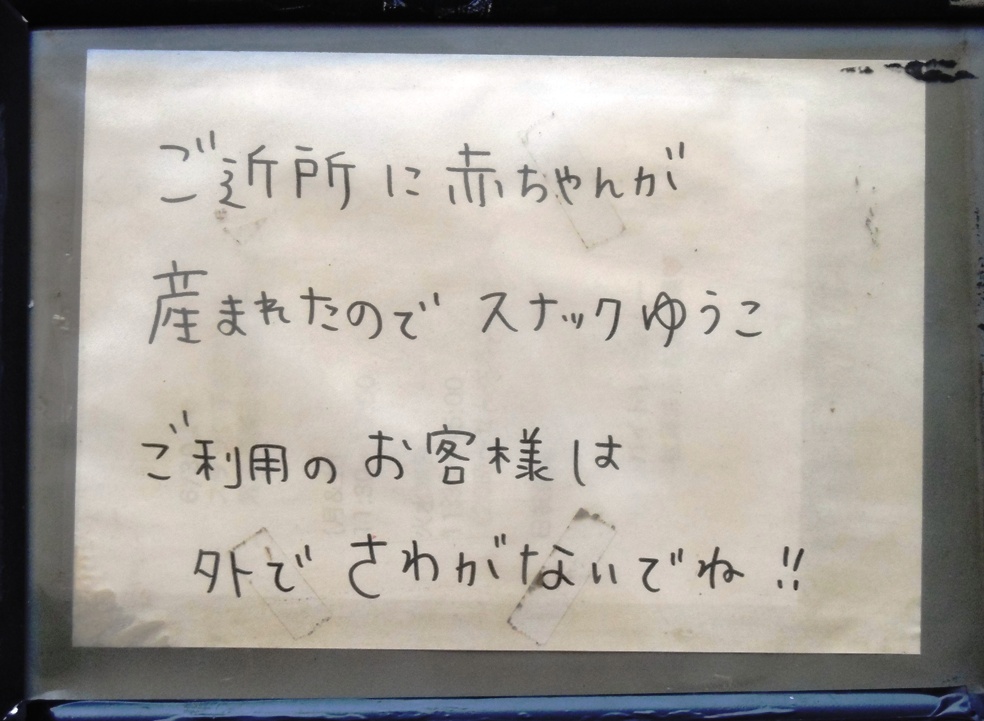 ご近所に赤ちゃんが
産まれたので スナックゆうこ
ご利用の お客様は
外で さわがないでね !!